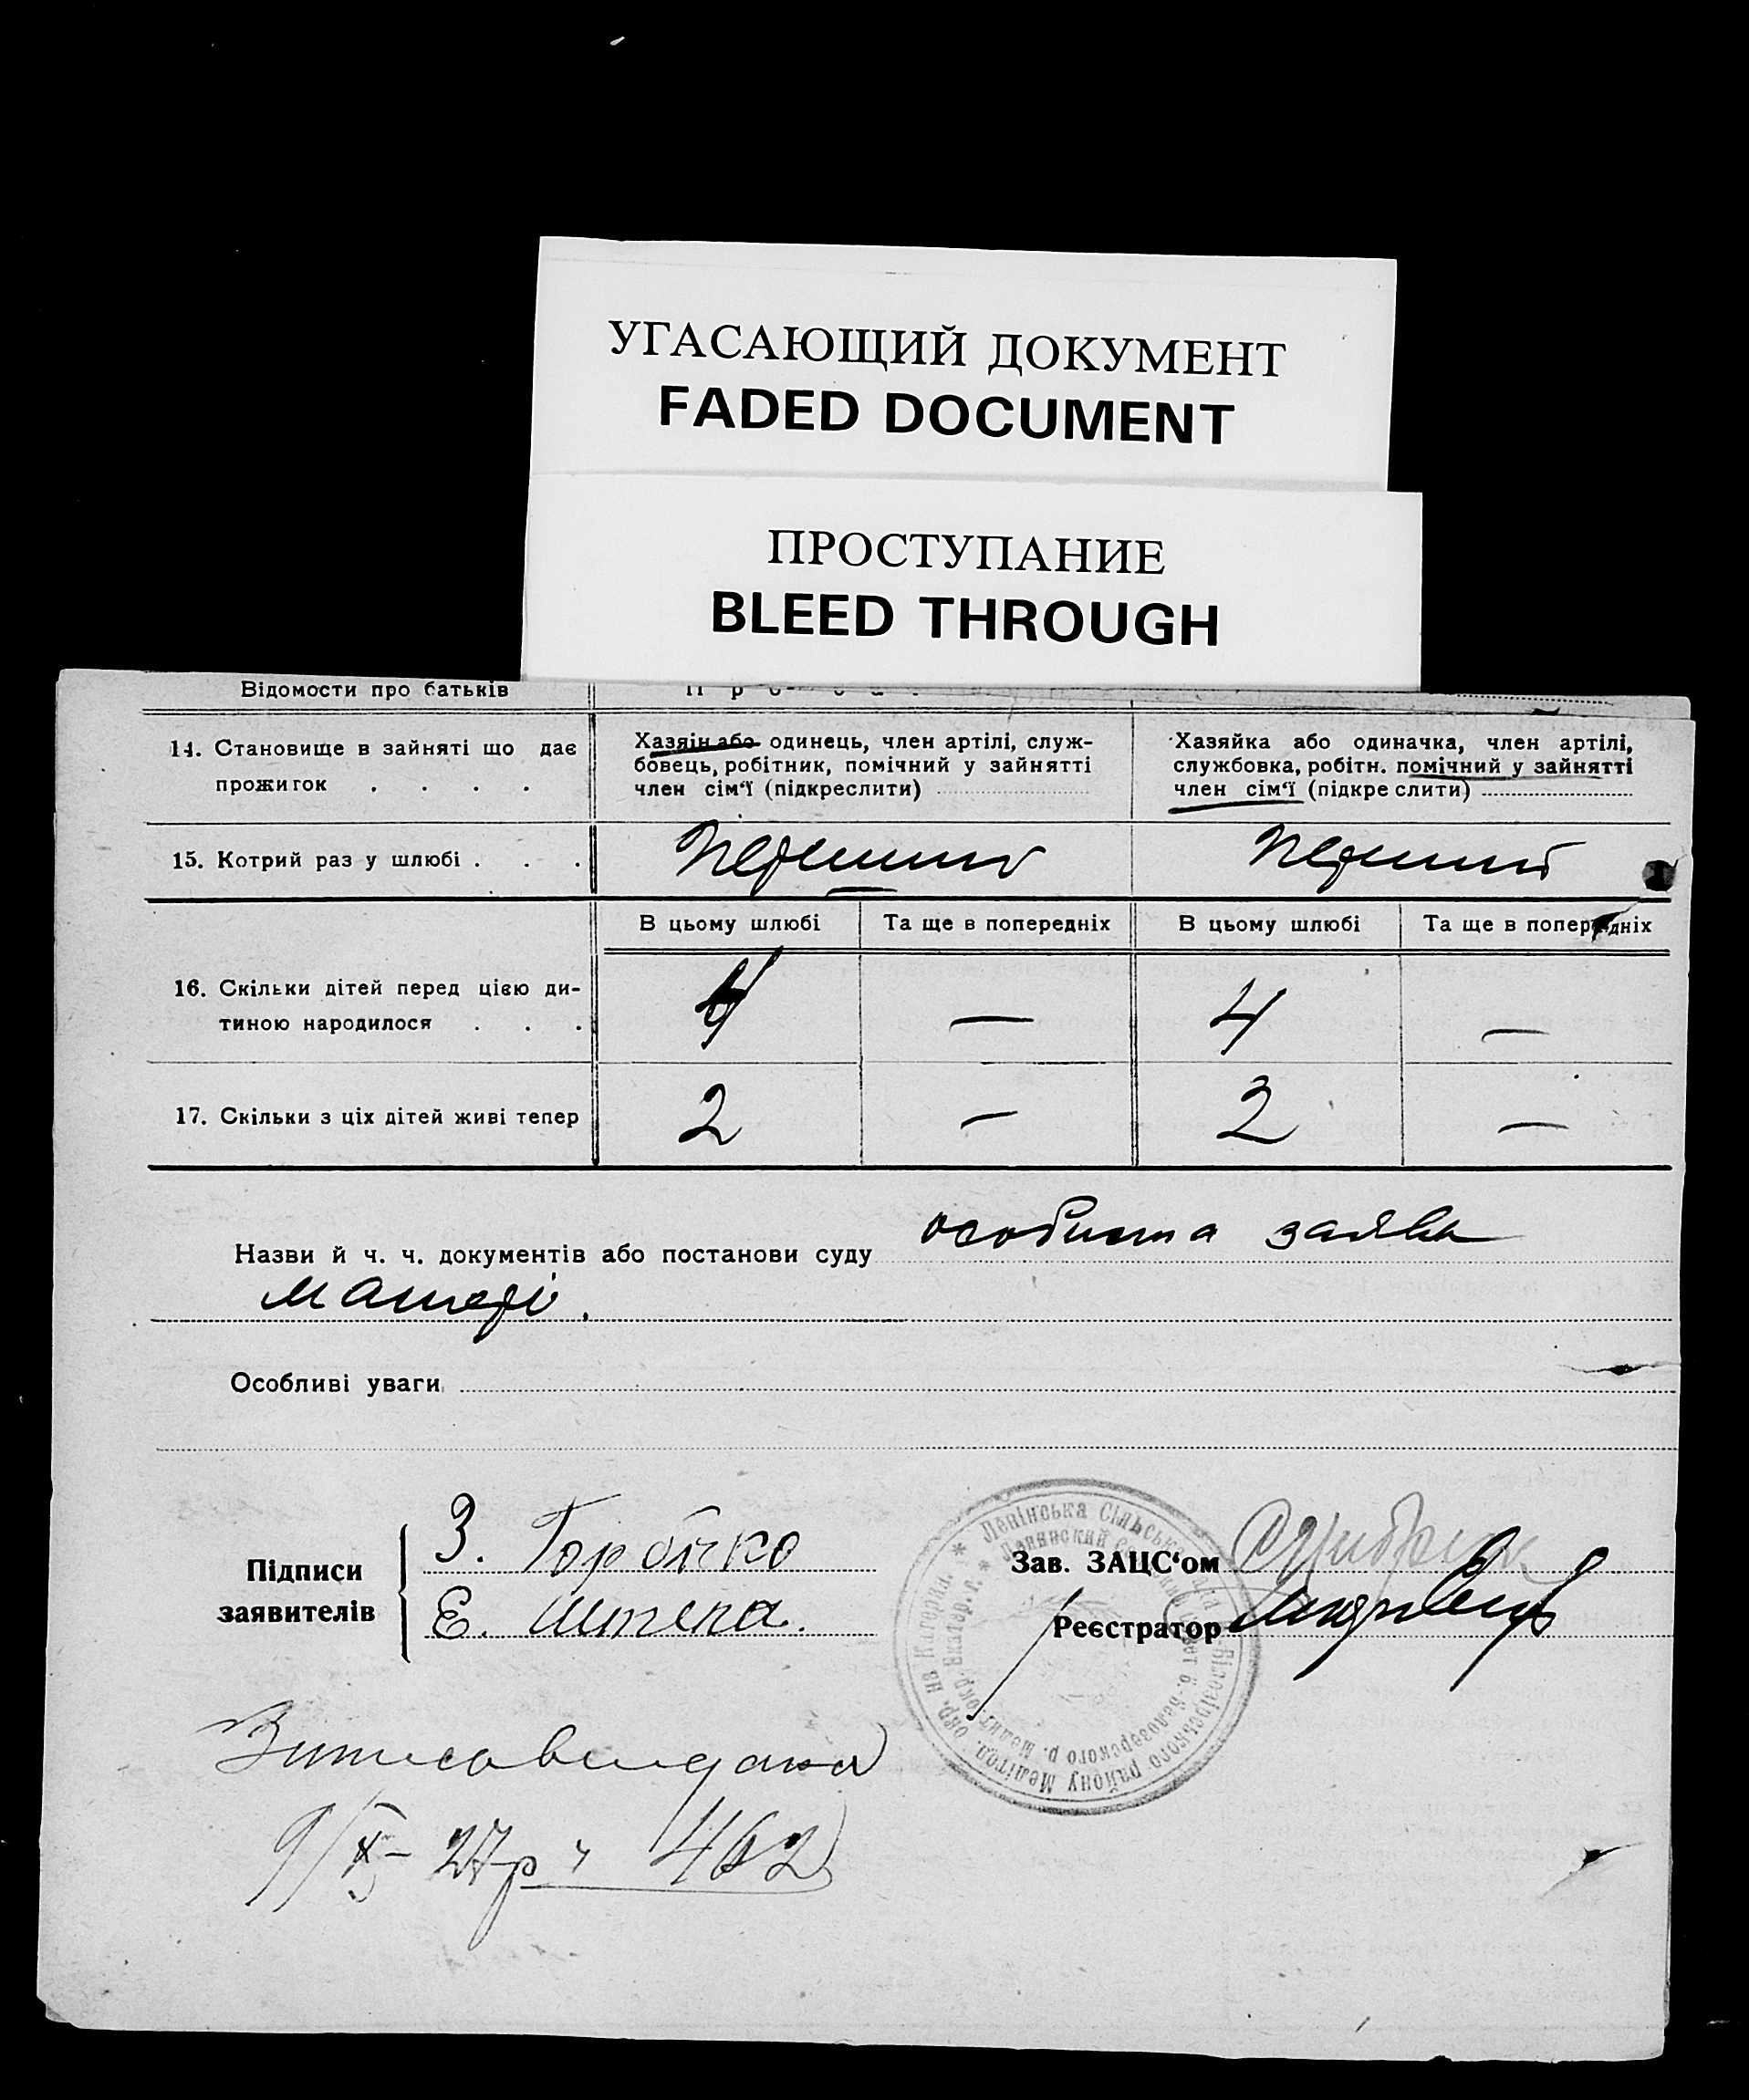 УГАСАЮЩИЙ ДОКУМЕНТ
FADED DOCUMENT
ПРОСТУПАНИЕ
BLEED THROUGH
Відомости про батьків
14. Становище в зайняті що дає
прожиток . . . .
Хазяін або одинець, член артілі, служ-
бовець, робітник, помічний у зайнятті
член сім'ї (підкреслити)
Хазяйка або одиначка, член артілі,
службовка, робітн. помічний у зайнятті
член сім'ї (підкреслити)
15. Котрий раз у шлюбі . . .
перший
перший
В цьому шлюбі
Та ще в попередніх
В цьому шлюбі
Та ще в попередніх
16. Скільки дітей перед цією ди-
тиною народилося . . .
4 — 4 —
17. Скільки з ціх дітей живі тепер
2 — 2 —
Назви й ч. ч. документів або постанови суду особиста заява
матері.
Особливі уваги
Підписи
заявителів
З. Горбічко
Е. Штепа.
Зав. ЗАЦС'ом
Реєстратор
Ленінська Сільська
Білозірського району Меліт
Белозерского р. Мелит
9/X- 27р ч 462